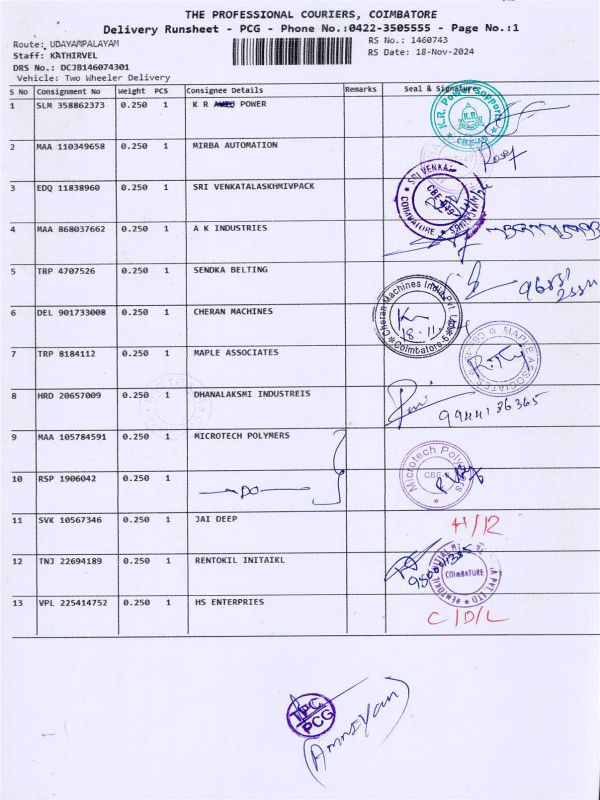 THE PROFESSIONAL COURIERS, COIMBATORE
Delivery Runsheet - PCG - Phone No.:0422-3505555 - Page No.:1
Route: UDAYAMPALAYAM
RS No.: 1460743
Staff: KATHIRVEL
RS Date: 18-Nov-2024
DRS No.: DCJB146074301
Vehicle: Two Wheeler Delivery
S No Consignment No Weight PCS Consignee Details Remarks Seal & Signature
1 SLM 358862373 0.250 1 K R AUTO POWER
K.R. Power Supports
2 MAA 110349658 0.250 1 MIRBA AUTOMATION
3 EDQ 11838960 0.250 1 SRI VENKATALASKHMIVPACK
SRI VENKA
COIMBATORE
4 MAA 868037662 0.250 1 A K INDUSTRIES
5 TRP 4707526 0.250 1 SENDKA BELTING
6 DEL 901733008 0.250 1 CHERAN MACHINES
Cheran Machines India Pvt. Ltd
18.11
Coimbatore-6
7 TRP 8184112 0.250 1 MAPLE ASSOCIATES
MAPLE ASSOCIATES
8 HRD 20657009 0.250 1 DHANALAKSMI INDUSTREIS
9944136365
9 MAA 105784591 0.250 1 MICROTECH POLYMERS
Microtech Polymers
CBE
10 RSP 1906042 0.250 1 DO
11 SVK 10567346 0.250 1 JAI DEEP H/R
12 TNJ 22694189 0.250 1 RENTOKIL INITAIKL
COIMBATORE
13 VPL 225414752 0.250 1 HS ENTERPRIES C/D/L
TPC
PCG